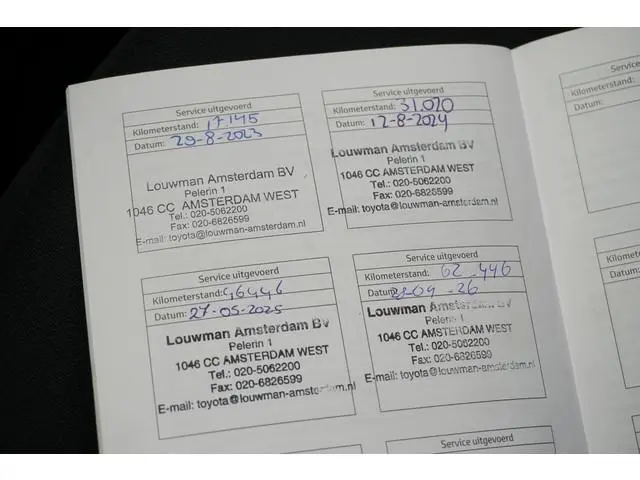 Service uitgevoerd
Kilometerstand: 17145
Datum: 29-8-2023
Louwman Amsterdam BV
Pelerin 1
1046 CC AMSTERDAM WEST
Tel.: 020-5062200
Fax: 020-6826599
E-mail: toyota@louwman-amsterdam.nl
Service uitgevoerd
Kilometerstand: 31.020
Datum: 12-8-2024
Louwman Amsterdam BV
Pelerin 1
1046 CC AMSTERDAM WEST
Tel.: 020-5062200
Fax: 020-6826599
E-mail: toyota@louwman-amsterdam.nl
Service uitgevoerd
Kilometerstand:
Datum: 27-05-2025
Louwman Amsterdam BV
Pelerin 1
1046 CC AMSTERDAM WEST
Tel.: 020-5062200
Fax: 020-6826599
E-mail: toyota@louwman-amsterdam.nl
Service uitgevoerd
Kilometerstand: 62.446
Datum:
Louwman Amsterdam BV
Pelerin 1
1046 CC AMSTERDAM WEST
Tel.: 020-5062200
Fax: 020-6826599
E-mail: toyota@louwman-amsterdam.nl
Service uitgevoerd
Servic
Kilometerstand:
Datum:
Kilometers
Datum: